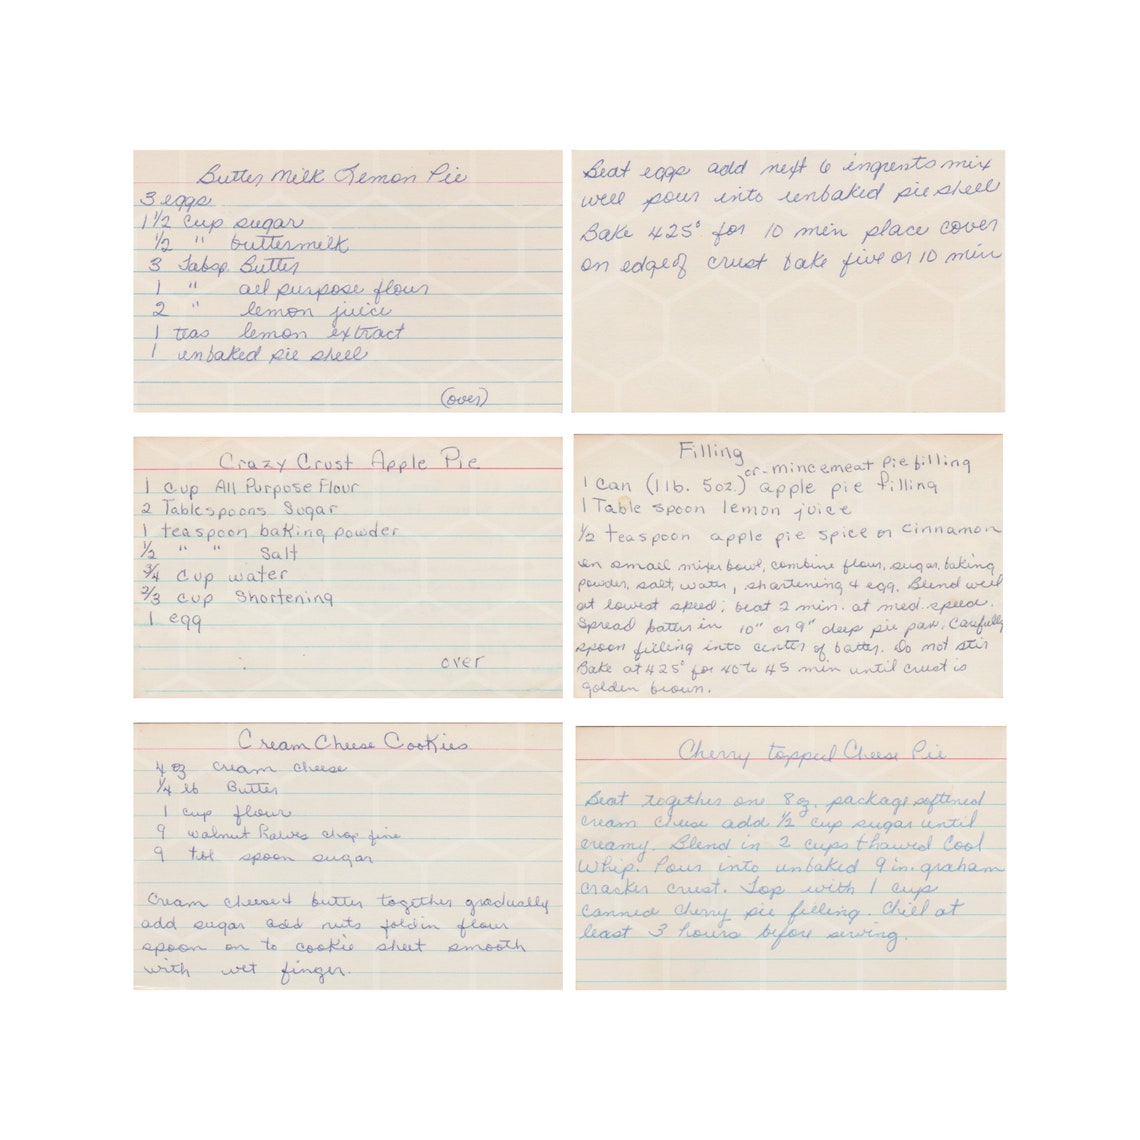 Butter Milk Lemon Pie
3 eggs
1 1/2 cup sugar
1/2 " buttermilk
3 Tabsp. Butter
1 " all purpose flour
2 " lemon juice
1 teas lemon extract
1 unbaked pie shell
(over)
Beat eggs add next 6 ingrents mix
well pour into unbaked pie shell
Bake 425° for 10 min place cover
on edge of crust bake five or 10 min
Crazy Crust Apple Pie
1 cup All Purpose Flour
2 Tablespoons Sugar
1 teaspoon baking powder
1/2 " " Salt
3/4 cup water
2/3 cup Shortening
1 egg
over
Filling
or-mincemeat pie filling
1 can (1 lb. 5oz.) apple pie filling
1 Table spoon lemon juice
1/2 teaspoon apple pie spice or cinnamon
In small mixer bowl, combine flour, sugar, baking
powder, salt, water, shortening & egg. Blend well
at lowest speed; beat 2 min. at med. speed.
Spread batter in 10" or 9" deep pie pan. Carefully
spoon filling into center of batter. Do not stir
Bake at 425° for 40 to 45 min until crust is
golden brown.
Cream Cheese Cookies
4 oz cream cheese
1/4 lb Butter
1 cup flour
9 walnut halves chop fine
9 tbl spoon sugar
Cream cheese & butter together gradually
add sugar add nuts fold in flour
spoon on to cookie sheet smooth
with wet finger.
Cherry topped Cheese Pie
Beat together one 8 oz. package softened
cream cheese add 1/2 cup sugar until
creamy. Blend in 2 cups thawed Cool
Whip. Pour into unbaked 9 in. graham
cracker crust. Top with 1 cup
canned cherry pie filling. Chill at
least 3 hours before serving.